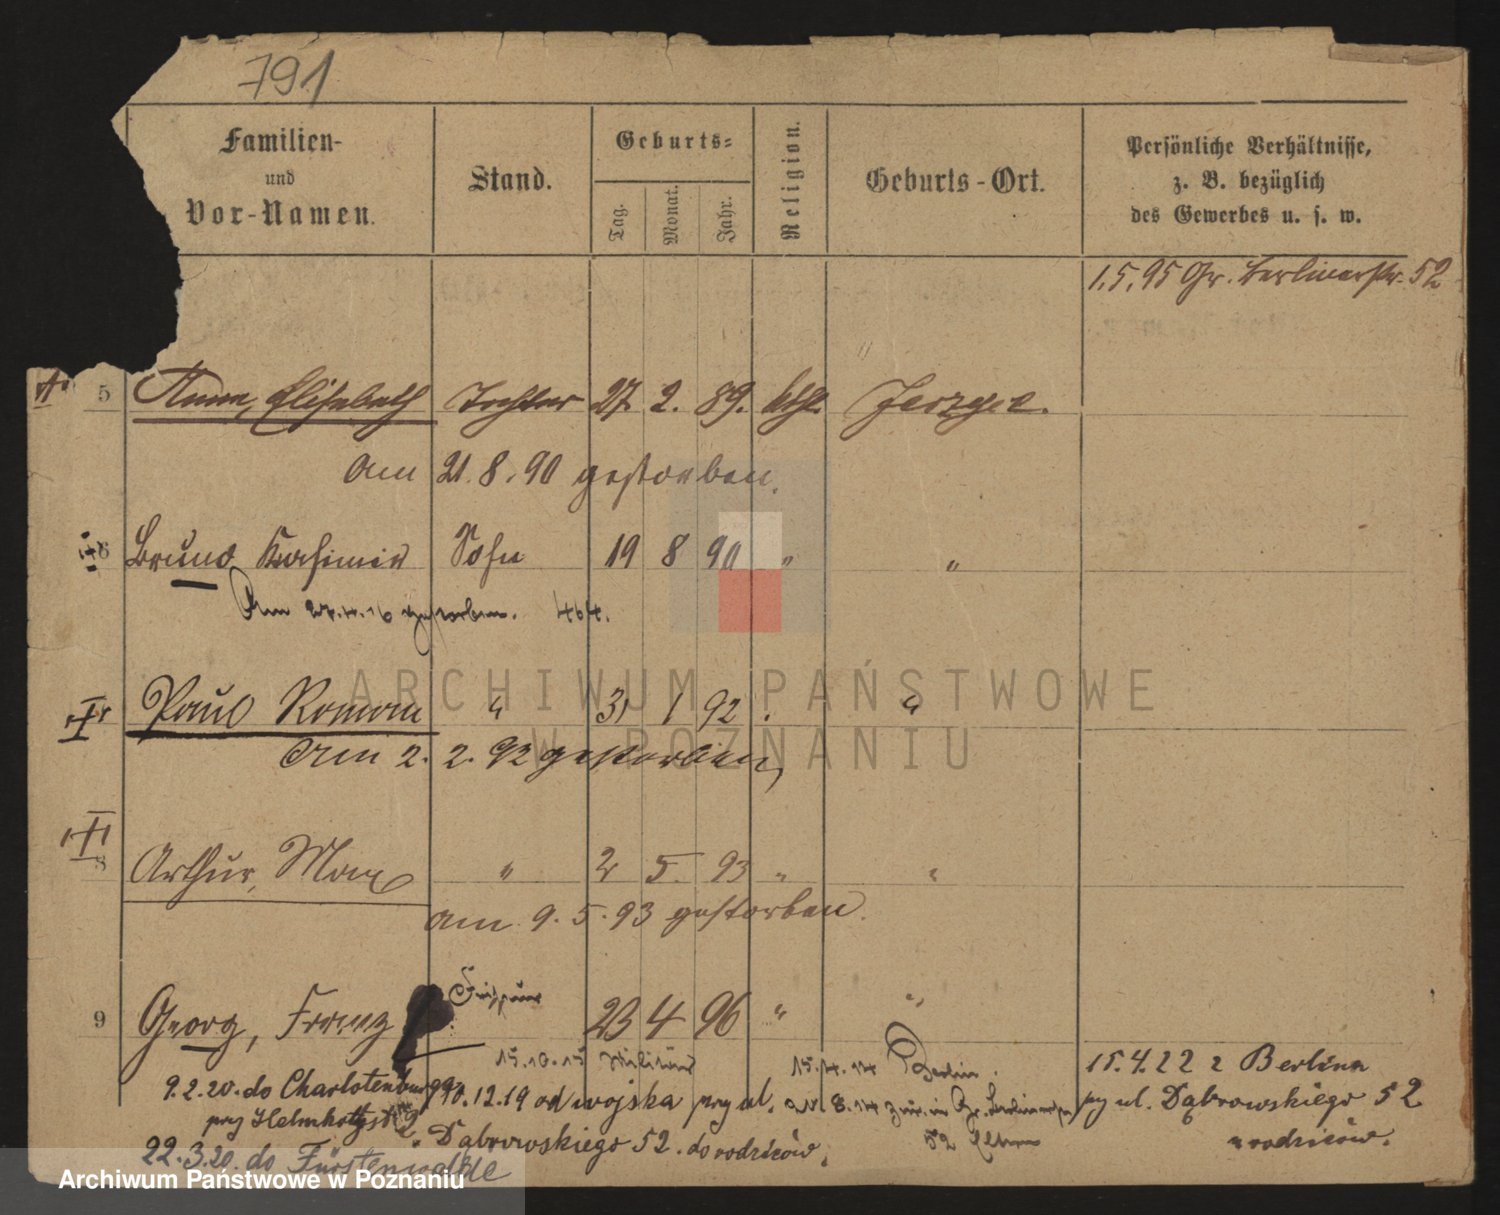 791
Familien- und Vor-Namen.
Stand.
Geburts-
Tag.
Monat.
Jahr.
Religion.
Geburts-Ort.
Persönliche Verhältnisse,
z. B. bezüglich
des Gewerbes u. s. w.
1.5.95 Gr. Berlinerstr. 52
5 Anna, Elisabeth Tochter 27. 2. 89. kth. Jerzyce.
am 21.8.90 gestorben.
6 Bruno Kasimir Sohn 19 8 90 " "
Am 27.4.16 gestorben. 464.
Paul Roman " 31 1 92 . "
Am 2. 2. 92 gestorben
8 Arthur, Max " 2 5. 93 " "
am 9. 5. 93 gestorben.
9 Georg, Franz Friseur 23 4 96 " "
15.10.15 Militär
15.4.14 Berlin.
15.4.22 z Berlina
9.2.20. do Charlottenburg
10.12.19 od wojska przy ul.
8.14 zur. in Gr. Berlinerstr.
przy ul. Dąbrowskiego 52
przy Helmholtzstr.
Dąbrowskiego 52. do rodziców.
52 Eltern
u rodziców.
22.3.20. do Fürstenwalde
ARCHIWUM PAŃSTWOWE
W POZNANIU
Archiwum Państwowe w Poznaniu